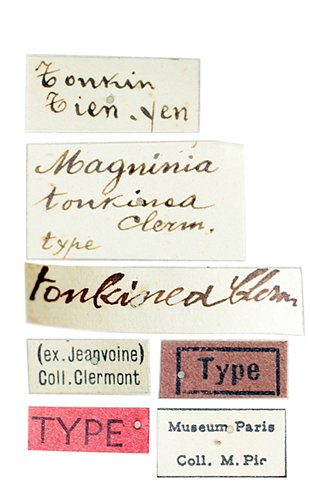 Tonkin
Tien-yen
Magninia
tonkinea
Clerm.
type
tonkinea Clerm
(ex. Jeanvoine)
Coll. Clermont
Type
TYPE
Museum Paris
Coll. M. Pic